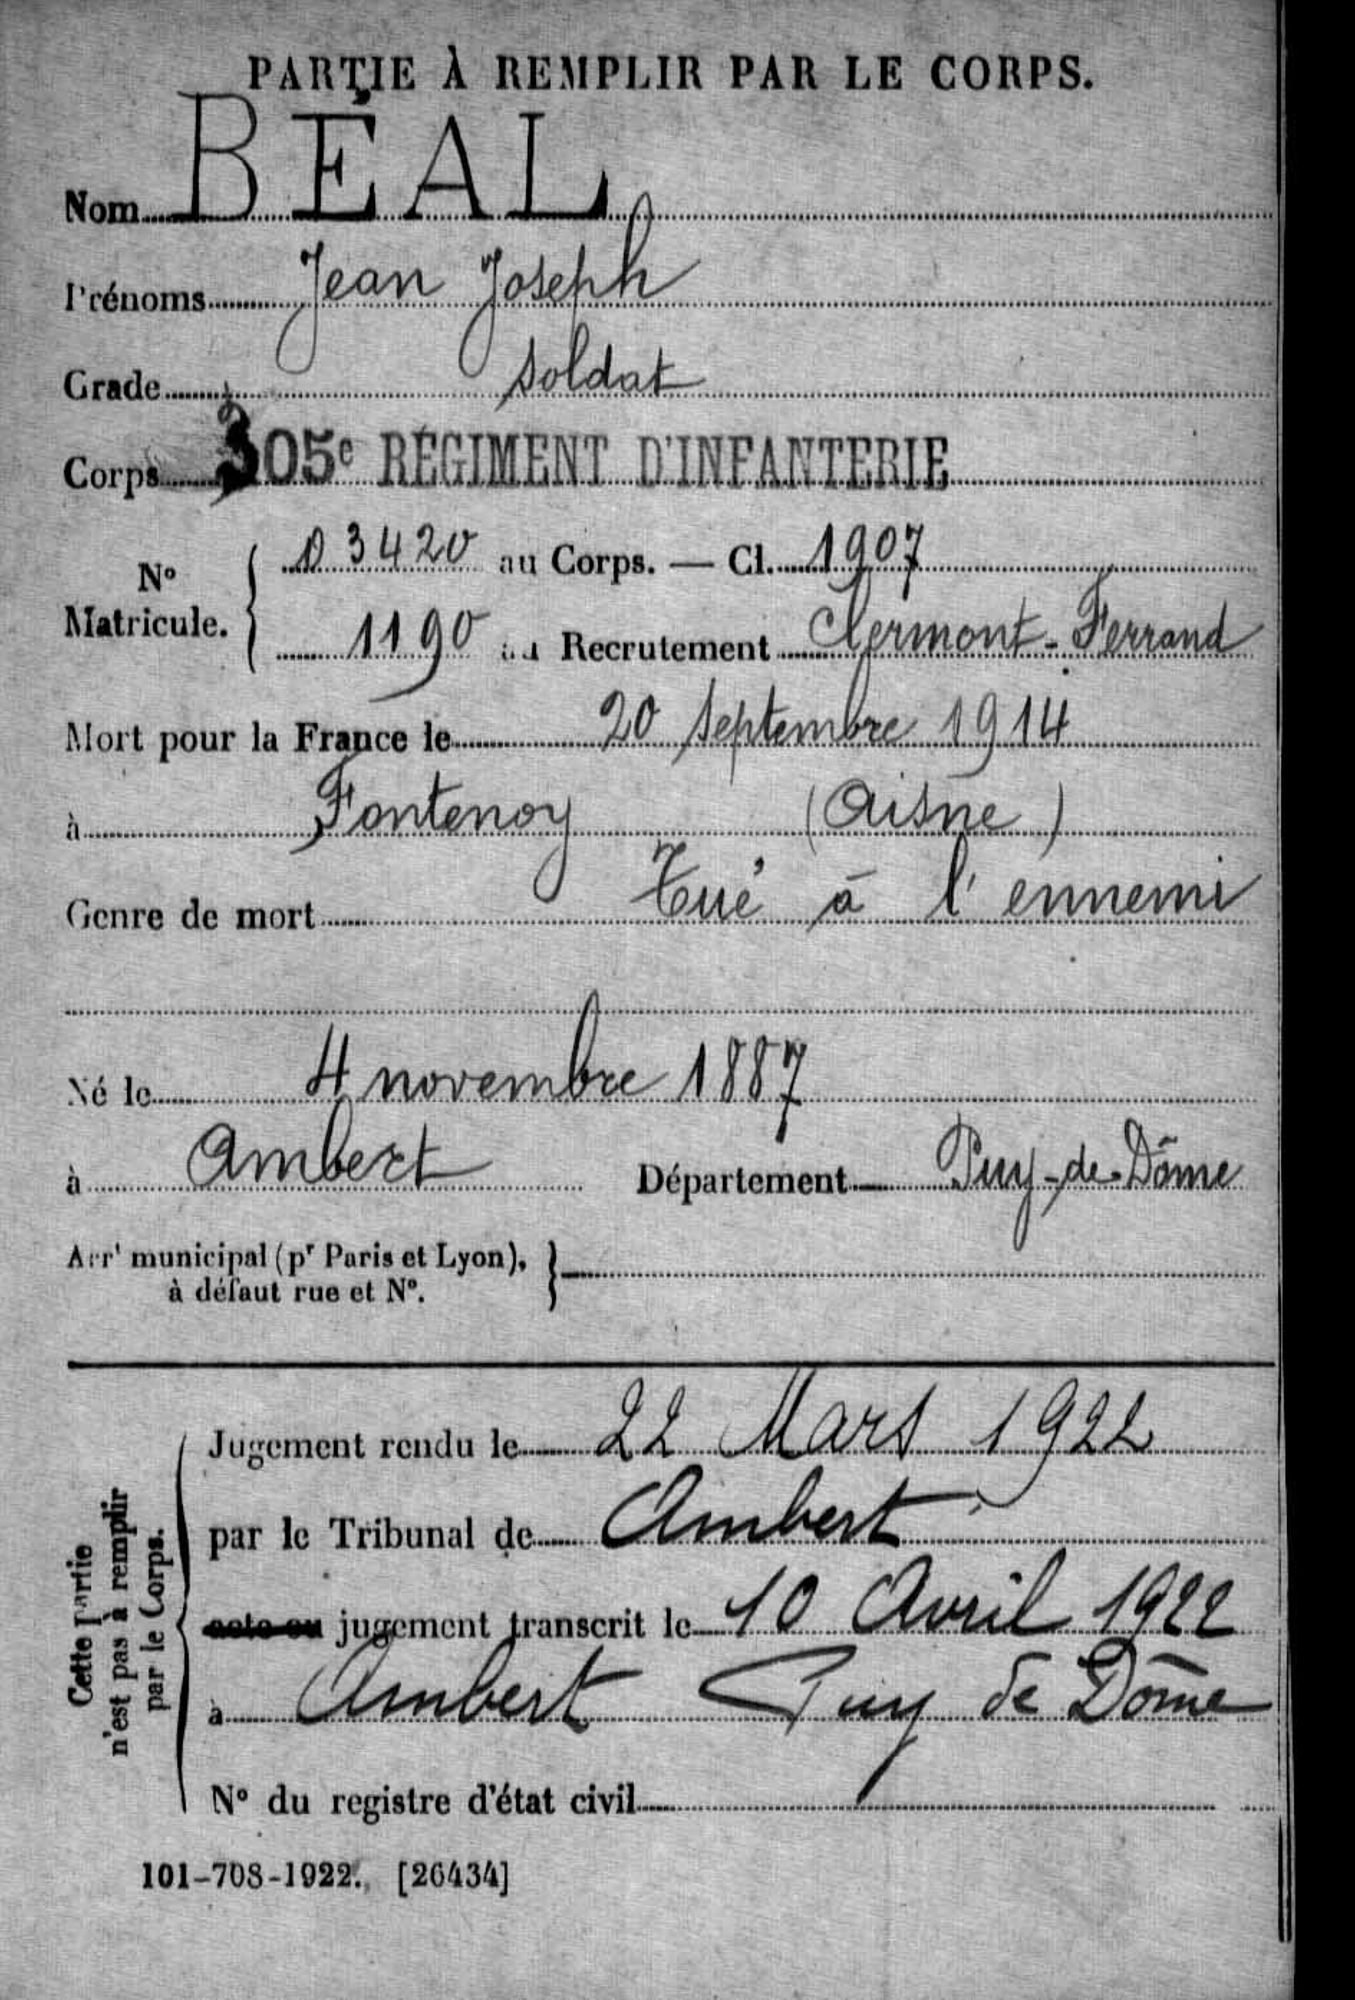 PARTIE À REMPLIR PAR LE CORPS.
Nom BÉAL
Prénoms Jean Joseph
Grade soldat
Corps 305e RÉGIMENT D'INFANTERIE
No Matricule. { 03420 au Corps. — Cl. 1907
1190 au Recrutement Clermont-Ferrand
Mort pour la France le 20 septembre 1914
à Fontenoy (Aisne)
Genre de mort Tué à l'ennemi
Né le 4 novembre 1887
à Ambert Département Puy-de-Dôme
Arrt municipal (pr Paris et Lyon), à défaut rue et No. }
Cette Partie n'est pas à remplir par le Corps. {
Jugement rendu le 22 Mars 1922
par le Tribunal de Ambert
acte ou jugement transcrit le 10 Avril 1922
à Ambert Puy de Dôme
No du registre d'état civil
101-708-1922. [26434]